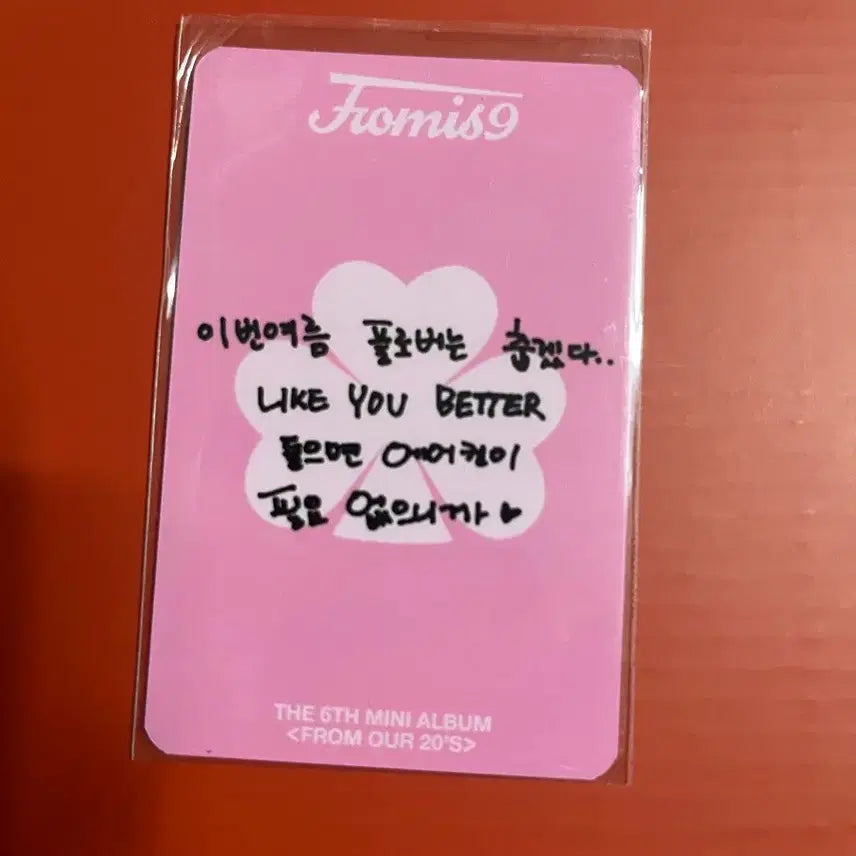 fromis9
이번여름 플로버는 춥겠다..
LIKE YOU BETTER
들으면 에어컨이
필요 없으니까 ♥
THE 6TH MINI ALBUM
<FROM OUR 20'S>